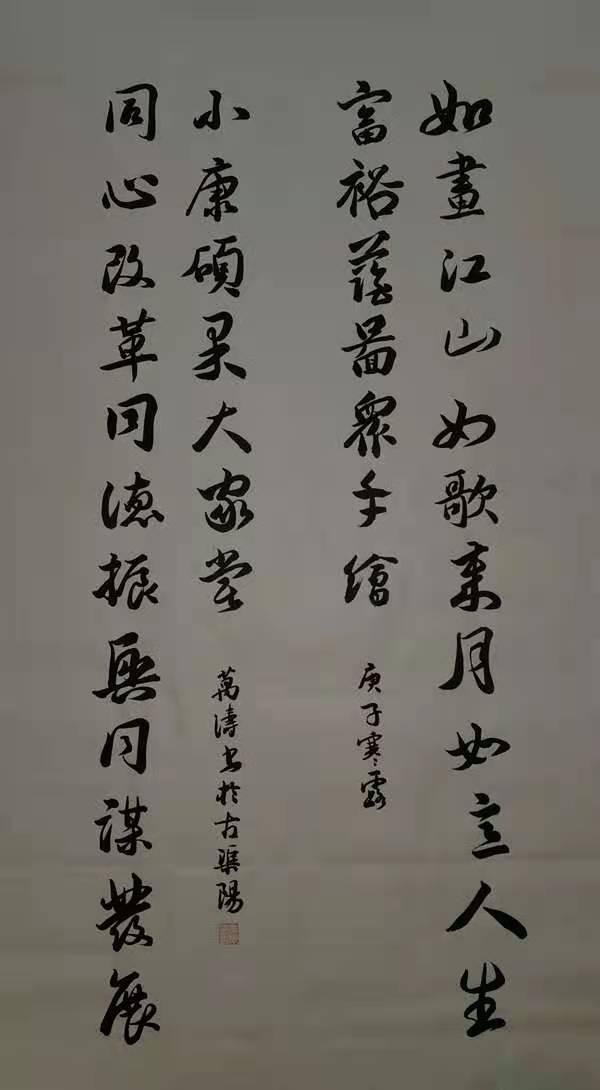 如畫江山如歌歲月如意人生
富裕藍圖眾手繪
庚子寒露
小康碩果大家嘗
萬濤书於古渠陽
同心改革同德振興同謀發展